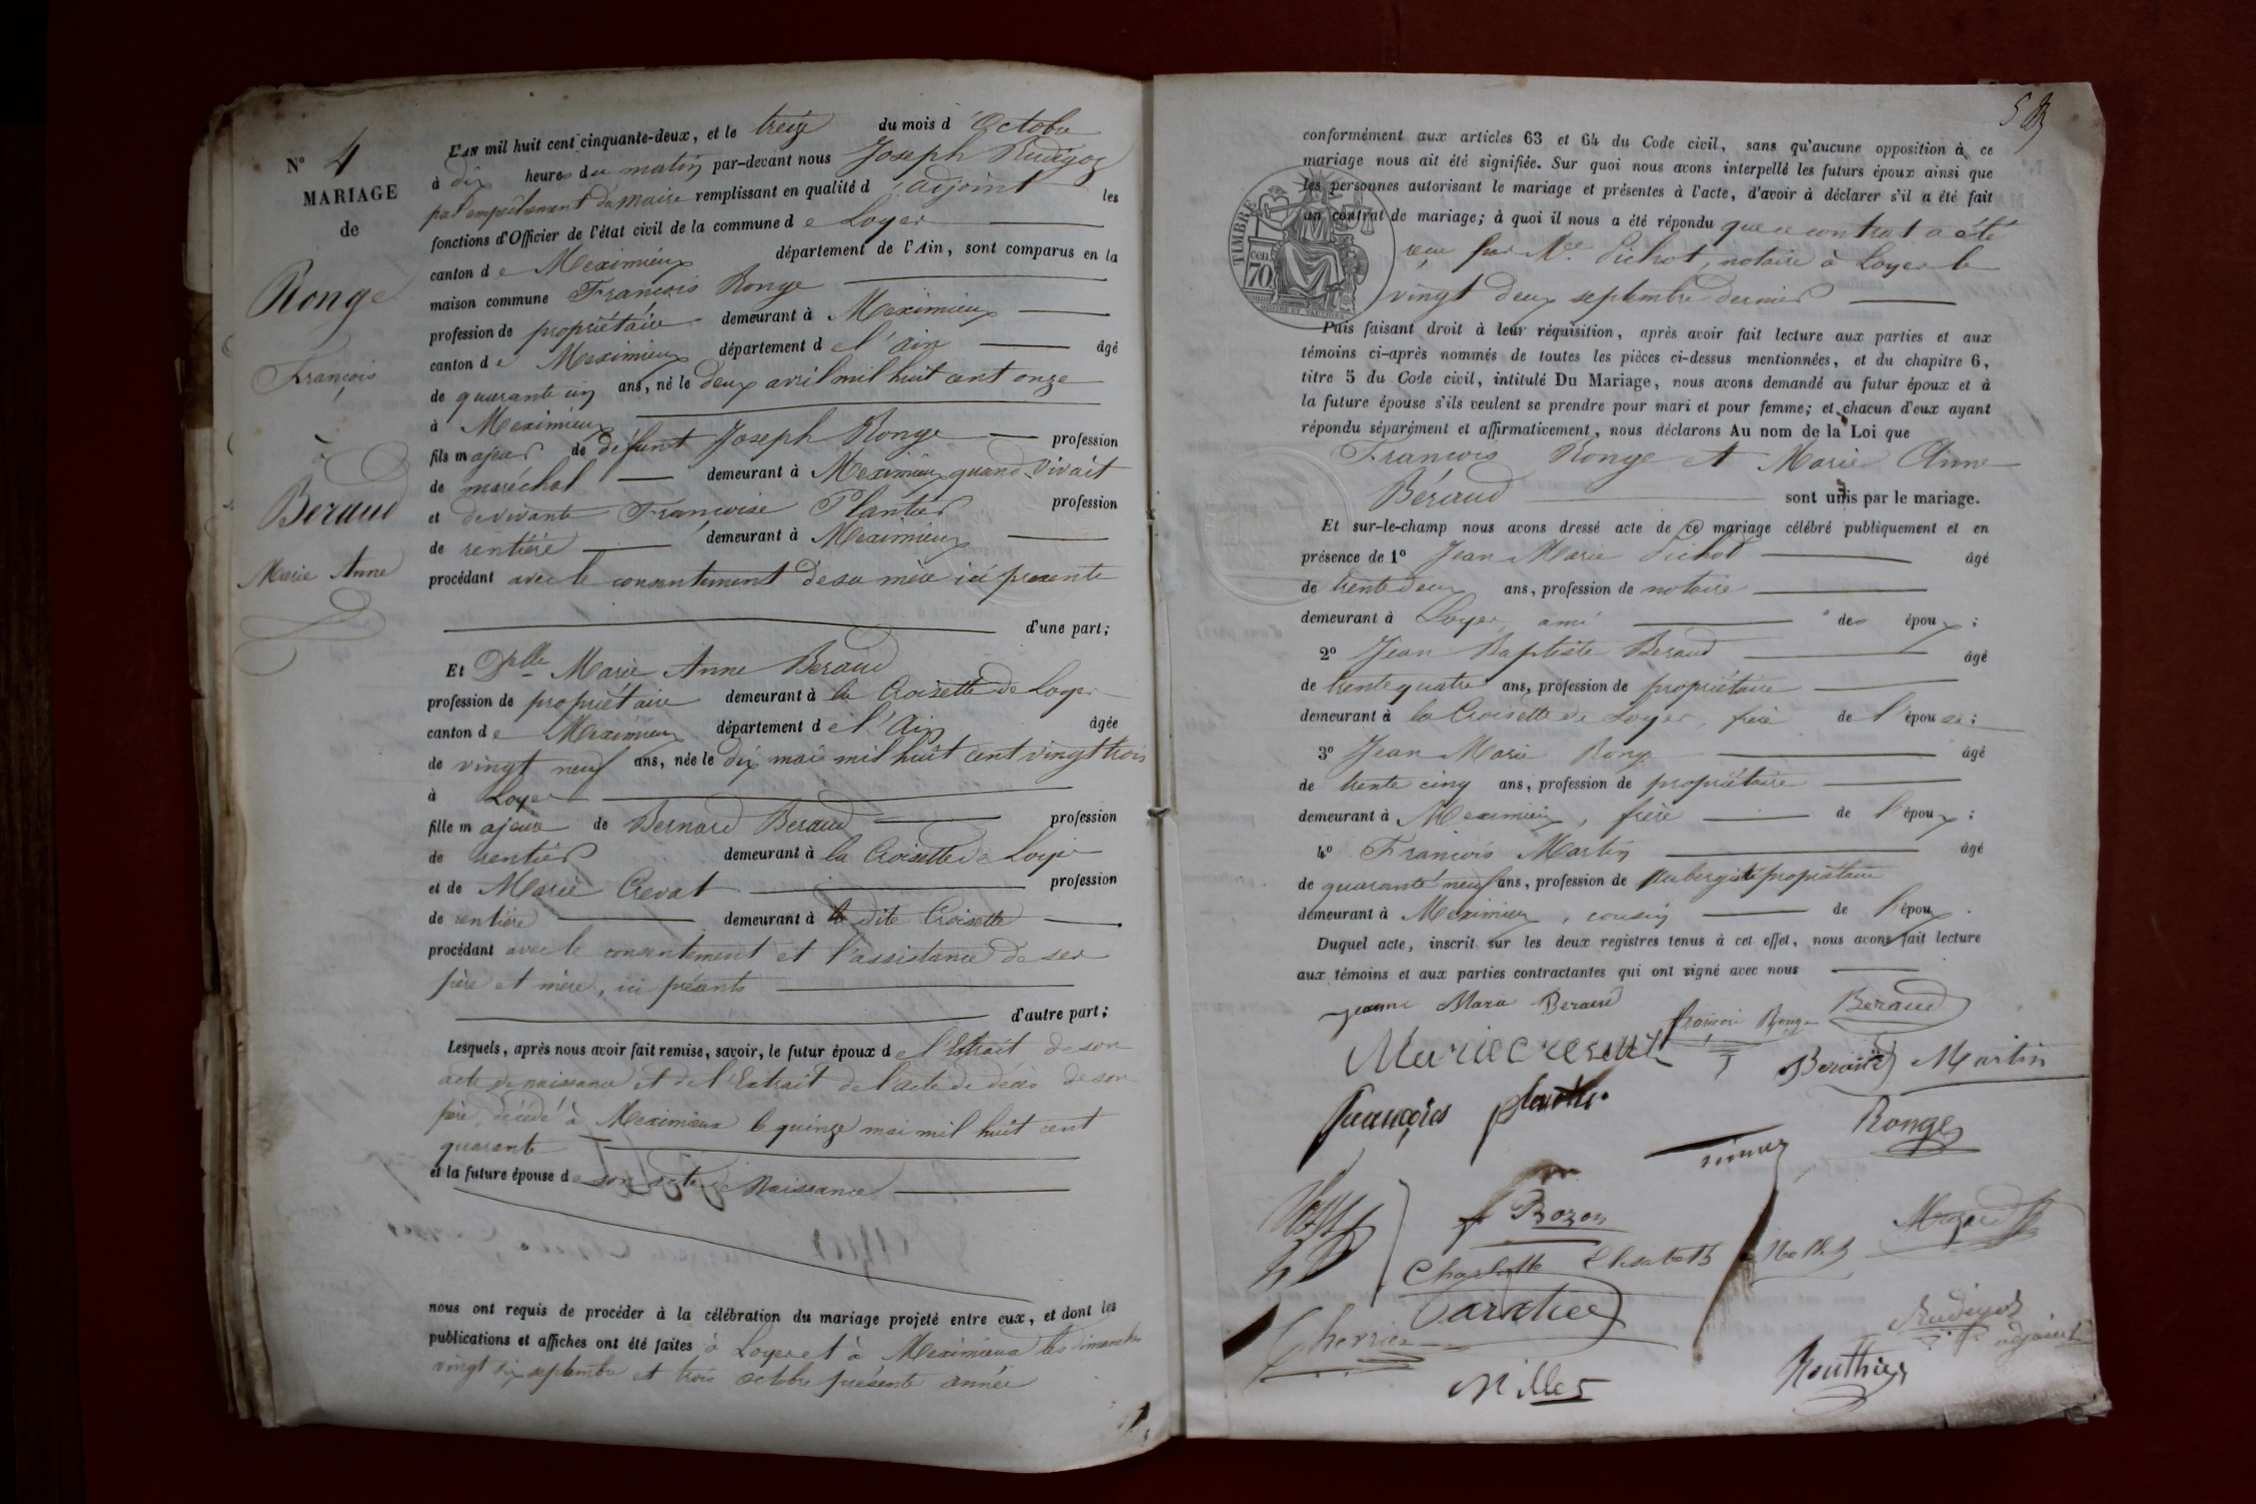 N° 4
MARIAGE
de
Ronge
François
à
Beraud
Marie Anne
L'AN mil huit cent cinquante-deux, et le treize du mois d'Octobre
à dix heures du matin par-devant nous Joseph Rudigoz
par empêchement du maire remplissant en qualité d'adjoint les
fonctions d'Officier de l'état civil de la commune de Loyer
canton de Meximieux département de l'Ain, sont comparus en la
maison commune François Ronge
profession de propriétaire demeurant à Meximieux
canton de Meximieux département de l'ain âgé
de quarante un ans, né le deux avril mil huit cent onze
à Meximieux
fils majeur de défunt Joseph Ronge profession
de maréchal demeurant à Meximieux quand vivait
et de vivante Françoise Plantier profession
de rentière demeurant à Meximieux
procédant avec le consentement de sa mère ici présente
d'une part;
Et Delle Marie Anne Beraud
profession de propriétaire demeurant à la Croisette de Loyer
canton de Meximieux département de l'Ain âgée
de vingt neuf ans, née le dix mai mil huit cent vingt trois
à Loyer
fille majeure de Bernard Beraud profession
de rentier demeurant à la Croisette de Loyer
et de Marie Crevat profession
de rentière demeurant à la dite Croisette
procédant avec le consentement et l'assistance de ses
père et mère, ici présents
d'autre part;
Lesquels, après nous avoir fait remise, savoir, le futur époux de l'Extrait de son
acte de naissance et de l'Extrait de l'acte de décès de son
père, décédé à Meximieux le quinze mai mil huit cent
quarante
et la future épouse de son acte de Naissance
nous ont requis de procéder à la célébration du mariage projeté entre eux, et dont les
publications et affiches ont été faites à Loyer et à Meximieux les dimanches
vingt six septembre et trois octobre présente année
conformément aux articles 63 et 64 du Code civil, sans qu'aucune opposition à ce
mariage nous ait été signifiée. Sur quoi nous avons interpellé les futurs époux ainsi que
les personnes autorisant le mariage et présentes à l'acte, d'avoir à déclarer s'il a été fait
un contrat de mariage; à quoi il nous a été répondu que ce contrat a été
reçu par Me Pichot, notaire à Loyer le
vingt deux septembre dernier
TIMBRE
cen. 70
Puis faisant droit à leur réquisition, après avoir fait lecture aux parties et aux
témoins ci-après nommés de toutes les pièces ci-dessus mentionnées, et du chapitre 6,
titre 5 du Code civil, intitulé Du Mariage, nous avons demandé au futur époux et à
la future épouse s'ils veulent se prendre pour mari et pour femme; et chacun d'eux ayant
répondu séparément et affirmativement, nous déclarons Au nom de la Loi que
François Ronge et Marie Anne
Béraud sont unis par le mariage.
Et sur-le-champ nous avons dressé acte de ce mariage célébré publiquement et en
présence de 1° Jean Marie Pichot âgé
de trente deux ans, profession de notaire
demeurant à Loyer, ami des époux;
2° Jean Baptiste Beraud âgé
de trente quatre ans, profession de propriétaire
demeurant à la Croisette de Loyer, frère de l'épouse;
3° Jean Marie Ronge âgé
de trente cinq ans, profession de propriétaire
demeurant à Meximieux, frère de l'époux;
4° François Martin âgé
de quarante neuf ans, profession de Aubergiste propriétaire
demeurant à Meximieux, cousin de l'époux.
Duquel acte, inscrit sur les deux registres tenus à cet effet, nous avons fait lecture
aux témoins et aux parties contractantes qui ont signé avec nous
Jeanne Maria Beraud
François Ronge
Beraud
Marie crevat
Beraud
Martin
françoise plantier
Ronge
Bozon
Charlotte Elisabeth
Cherrier
Millet
Rudigoz
adjoint
Routhier